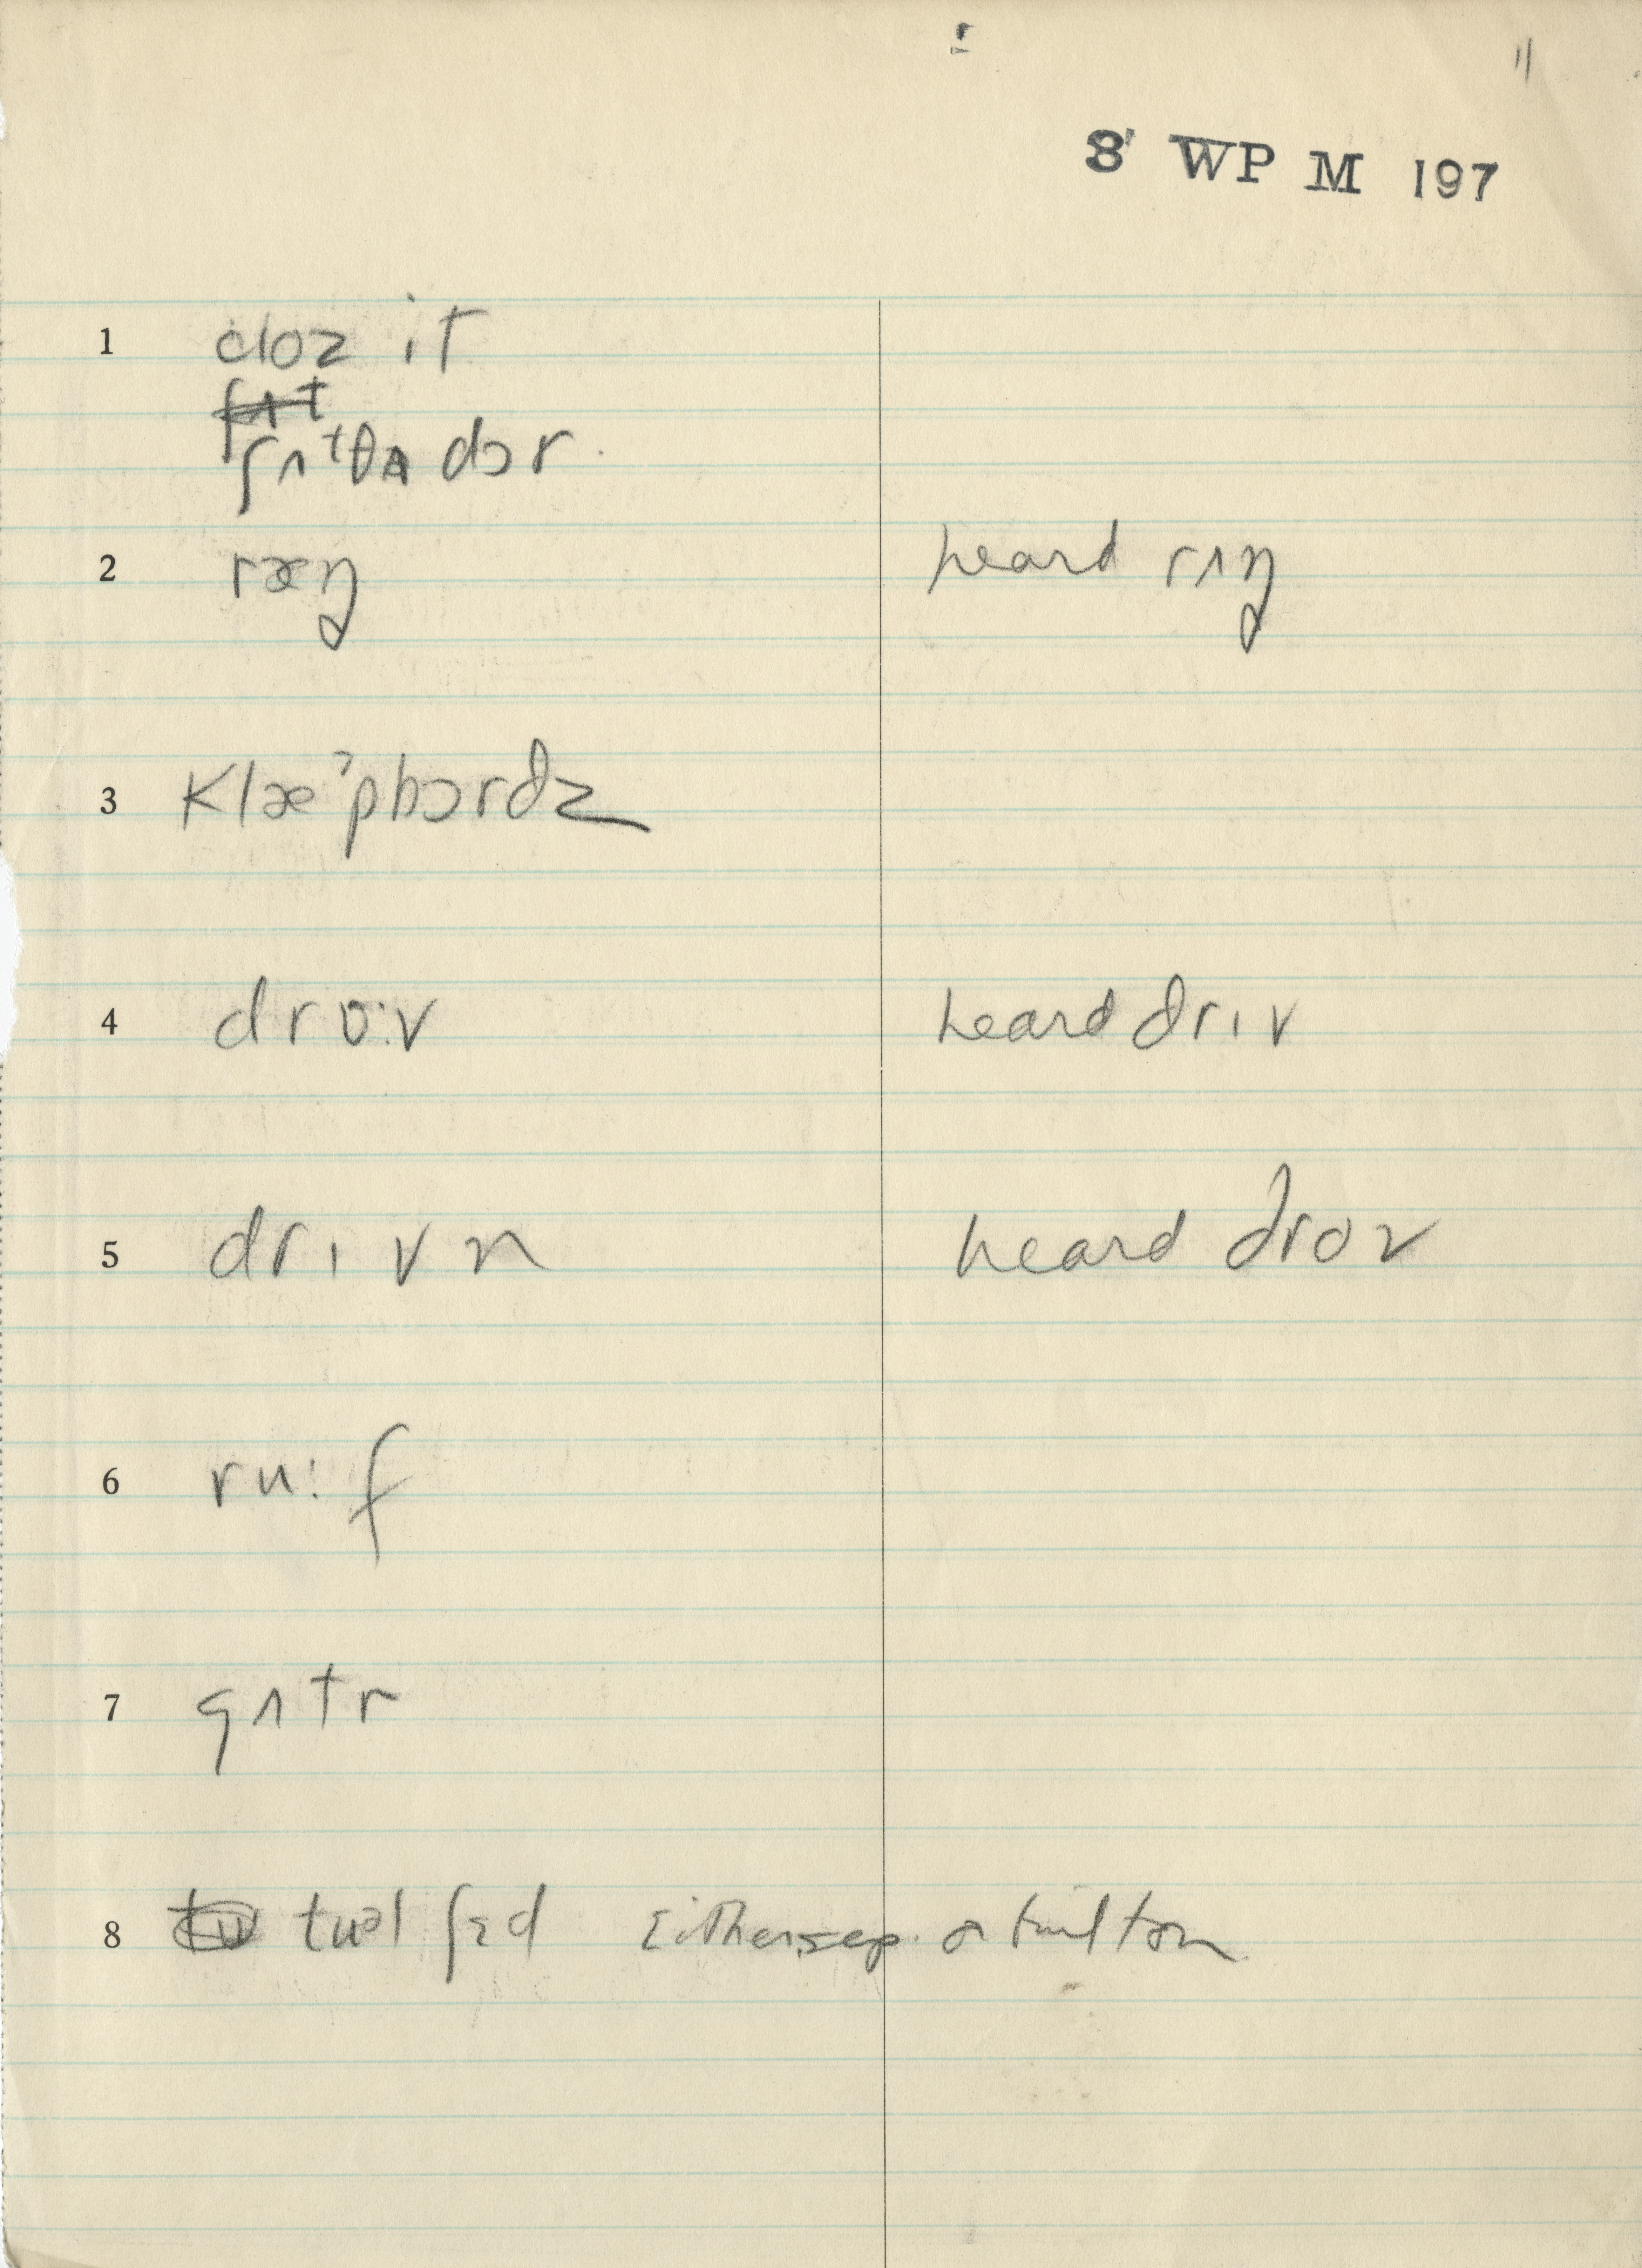 11
8 WP M 197
1 cloz it
ʃʌt
ʃʌt θʌ dɔr.
2 ræŋ heard rʌŋ
3 klæˀpbɔrdz
4 dro:v heard driv
5 drivn heard drov
6 ru:f
7 gʌtr
8 tul ʃɛd Either sep. or built on